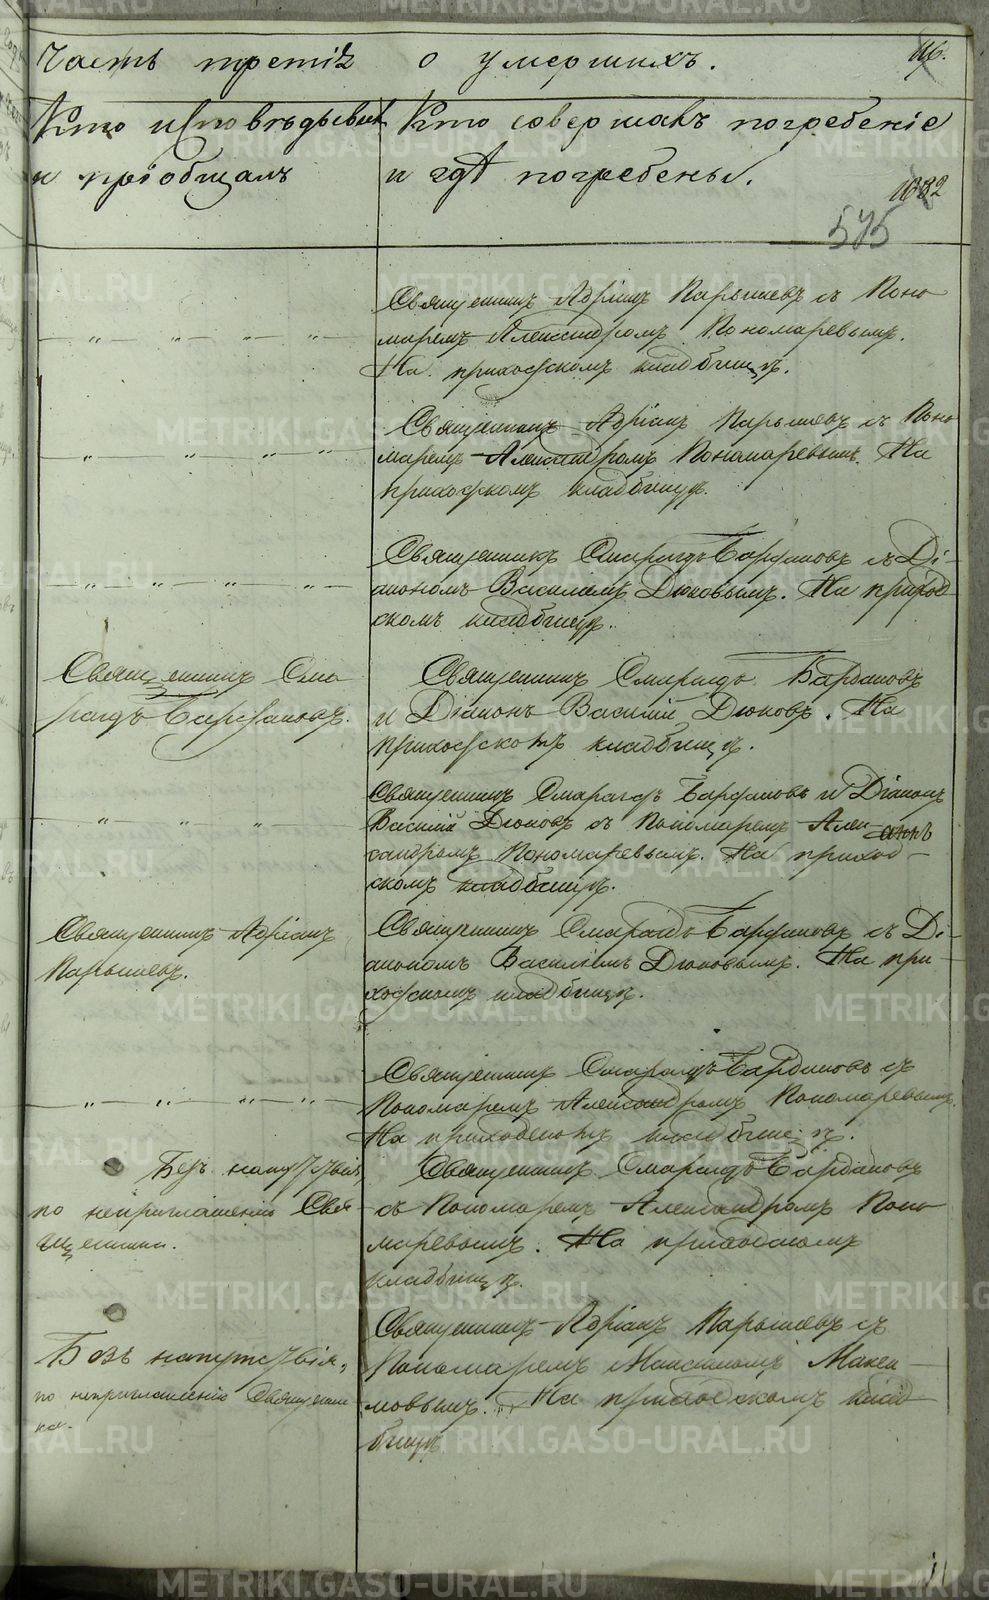 Часть третія о умершихъ.
46.
Кто исповѣдывалъ
и пріобщалъ
Кто совершалъ погребеніе
и гдѣ погребены.
575
Священникъ Адріанъ Парышевъ съ Поно
маремъ Александромъ Пономаревымъ.
На приходскомъ кладбищѣ.
Священникъ Адріанъ Парышевъ съ Поно
маремъ Александромъ Пономаревымъ. На
приходскомъ кладбищѣ.
Священникъ Смарагдъ Бардановъ съ Ді-
акономъ Василіемъ Дюковымъ. На приход-
скомъ кладбищѣ.
Священникъ Сма
рагдъ Бардановъ.
Священникъ Смарагдъ Бардановъ
и Діаконъ Василій Дюковъ. На
приходскомъ кладбищѣ.
Священникъ Смарагдъ Бардановъ и Діаконъ
Василій Дюковъ съ Пономаремъ Алек
сандромъ Пономаревымъ. На приход-
скомъ кладбищѣ.
Священникъ Адріанъ
Парышевъ.
Священникъ Смарагдъ Бардановъ съ Ді-
акономъ Василіемъ Дюковымъ. На при-
ходскомъ кладбищѣ.
Священникъ Смарагдъ Бардановъ съ
Пономаремъ Александромъ Пономаревымъ.
На приходскомъ кладбищѣ.
Безъ напутствія,
по неприглашенію Свя
щенника.
Священникъ Смарагдъ Бардановъ
съ Пономаремъ Александромъ Поно
маревымъ. На приходскомъ
кладбищѣ.
Безъ напутствія,
по неприглашенію Священни
ка.
Священникъ Адріанъ Парышевъ съ
Пономаремъ Максимомъ Макси
мовымъ. На приходскомъ клад
бищѣ
METRIKI.GASO-URAL.RU